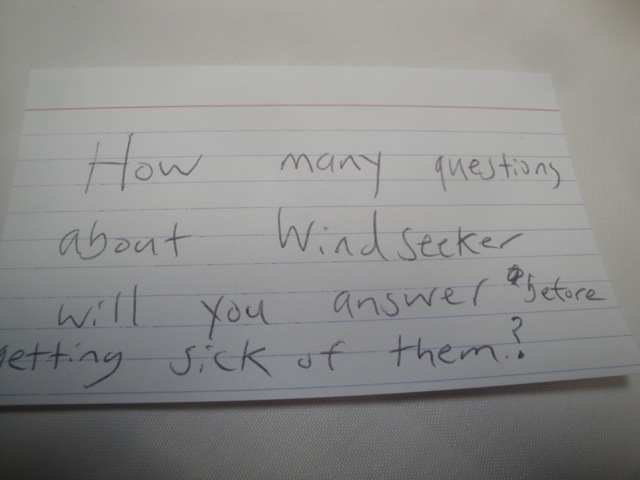 How many questions
about Windseeker
will you answer before
getting sick of them?